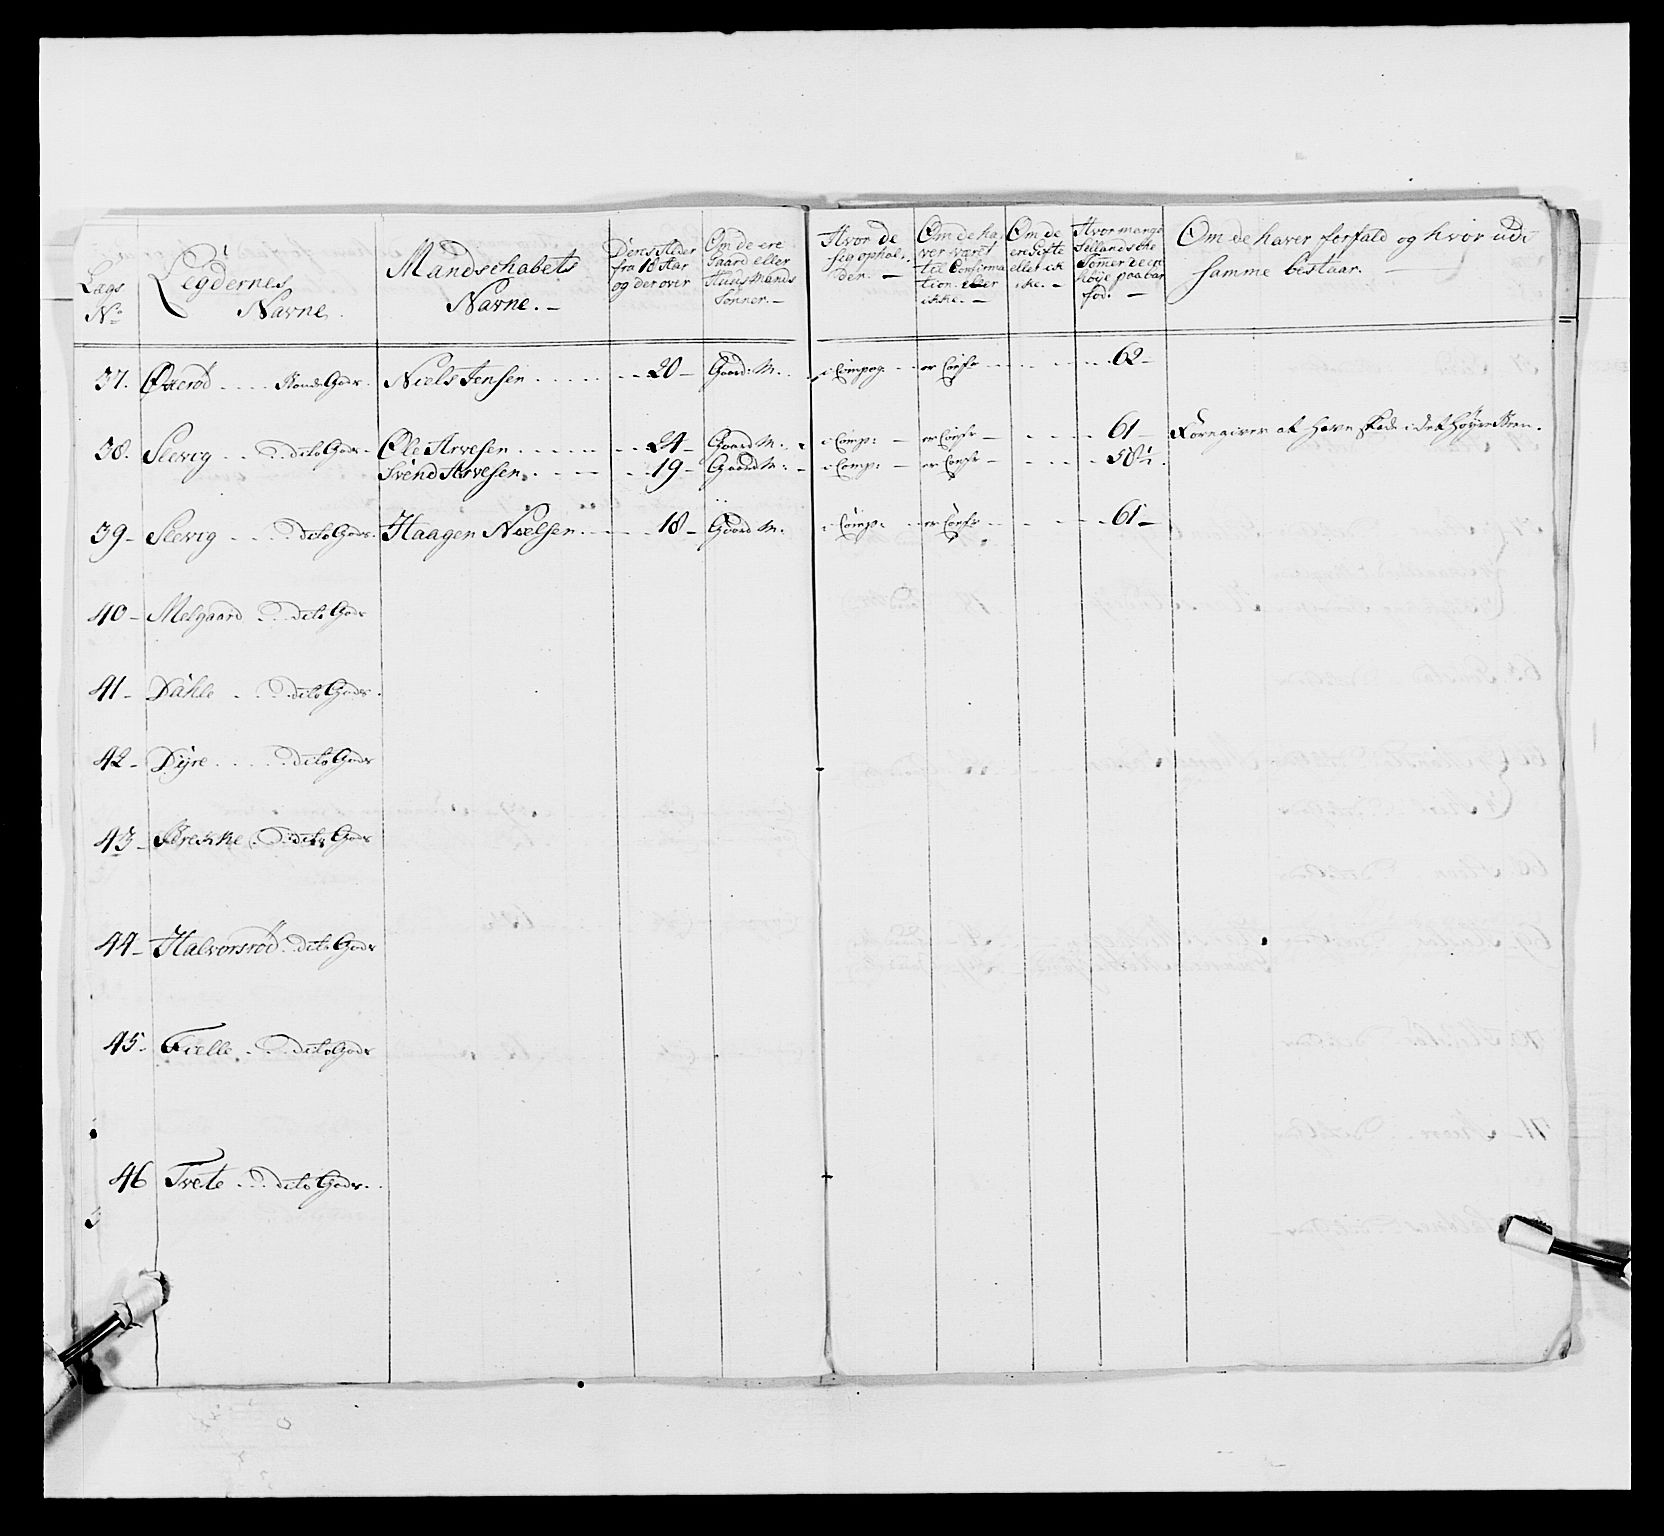 Lægs No
Legdernes Navne.
Mandschabets Navne. –
Deres Alder fra 18 Aar og derover
Om de ere Gaard eller Huus Mands Sønner. –
Hvor de sig opholder. –
Om de haver været til Confirmation eller ikke. –
Om de ere Gifte eller ikke. –
Hvor mange Sellandsche Tomer de ere høye paa bar fod. –
Om de haver forfald og hvor udi samme bestaar. –
37. Øtterød Gods. Niels Jensen 20 – Gaard M. i Compag: er Confr 62 –
38. Slevig dito Gods. Ole Arvesen 24 – Gaard M. i Comp: er Confr 61 – Foregiver at have skade i det høyre Been.
Svend Arvesen 19 – Gaard M. i Comp: er Confr 58½.
39 – Slevig dito Gods. Haagen Nielsen 18 – Gaard M. i Comp: er Confr 61 –
40 – Melgaard dito Gods
41 – Dahle dito Gods.
42 – Dyre dito Gods
43 – Brekke dito Gods
44 – Halvorsrød dito Gods
45 – Fielle dito Gods
46 Tvete dito Gods.